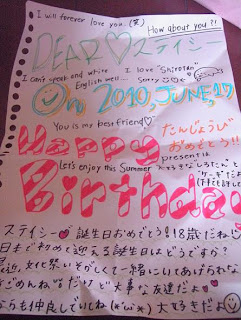 I will forever love you. (笑)
How about you?!
DEAR♡ステイシー
I can't speak and write I love "Shirotan"
English well... Sorry
On 2010, JUNE, 17
You is my best friend♡
たんじょうび
おめでとう!!
Happy
present は
Let's enjoy this Summer
Birthday
ステイシー 誕生日おめでとう! 18歳だね
日本で初めて迎える誕生日はどうですか?
最近、文化祭いそがしくて一緒にいてあげられな
ごめんね だけど大事な友達だよ
からも仲良しでいてね 大好きだよ